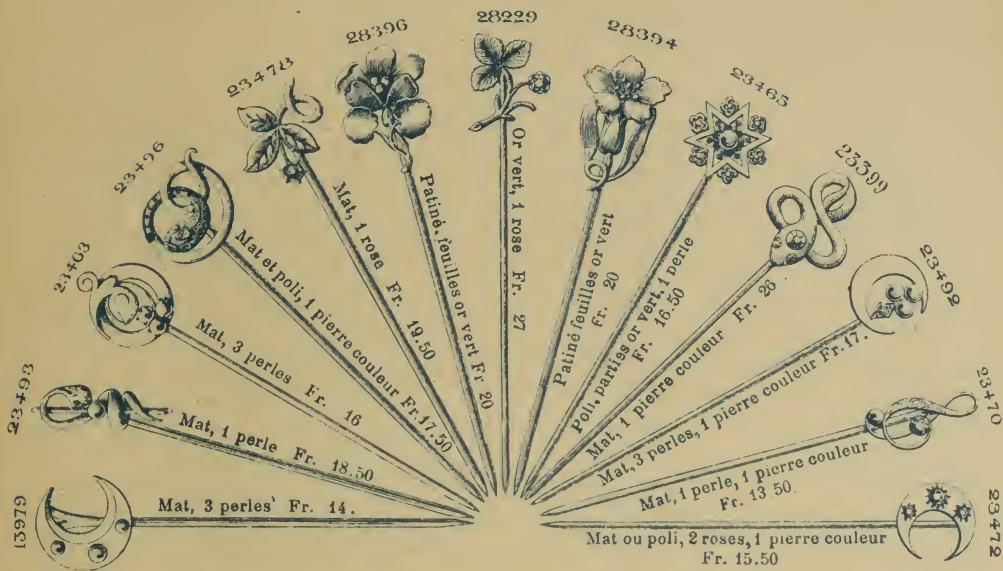 13979
Mat, 3 perles Fr. 14.
23493
Mat, 1 perle Fr. 18.50
23463
Mat, 3 perles Fr. 16
23496
Mat et poli, 1 pierre couleur Fr. 17.50
23478
Mat, 1 rose Fr. 19.50
28396
Patiné, feuilles or vert Fr 20
28229
Or vert, 1 rose Fr. 27
28394
Patiné feuilles or vert
Fr. 20
23465
Poli, parties or vert, 1 perle
Fr. 16.50
23399
Mat, 1 pierre couleur Fr. 26
23492
Mat, 3 perles, 1 pierre couleur Fr. 17.
23470
Mat, 1 perle, 1 pierre couleur
Fr. 13.50
23472
Mat ou poli, 2 roses, 1 pierre couleur
Fr. 15.50